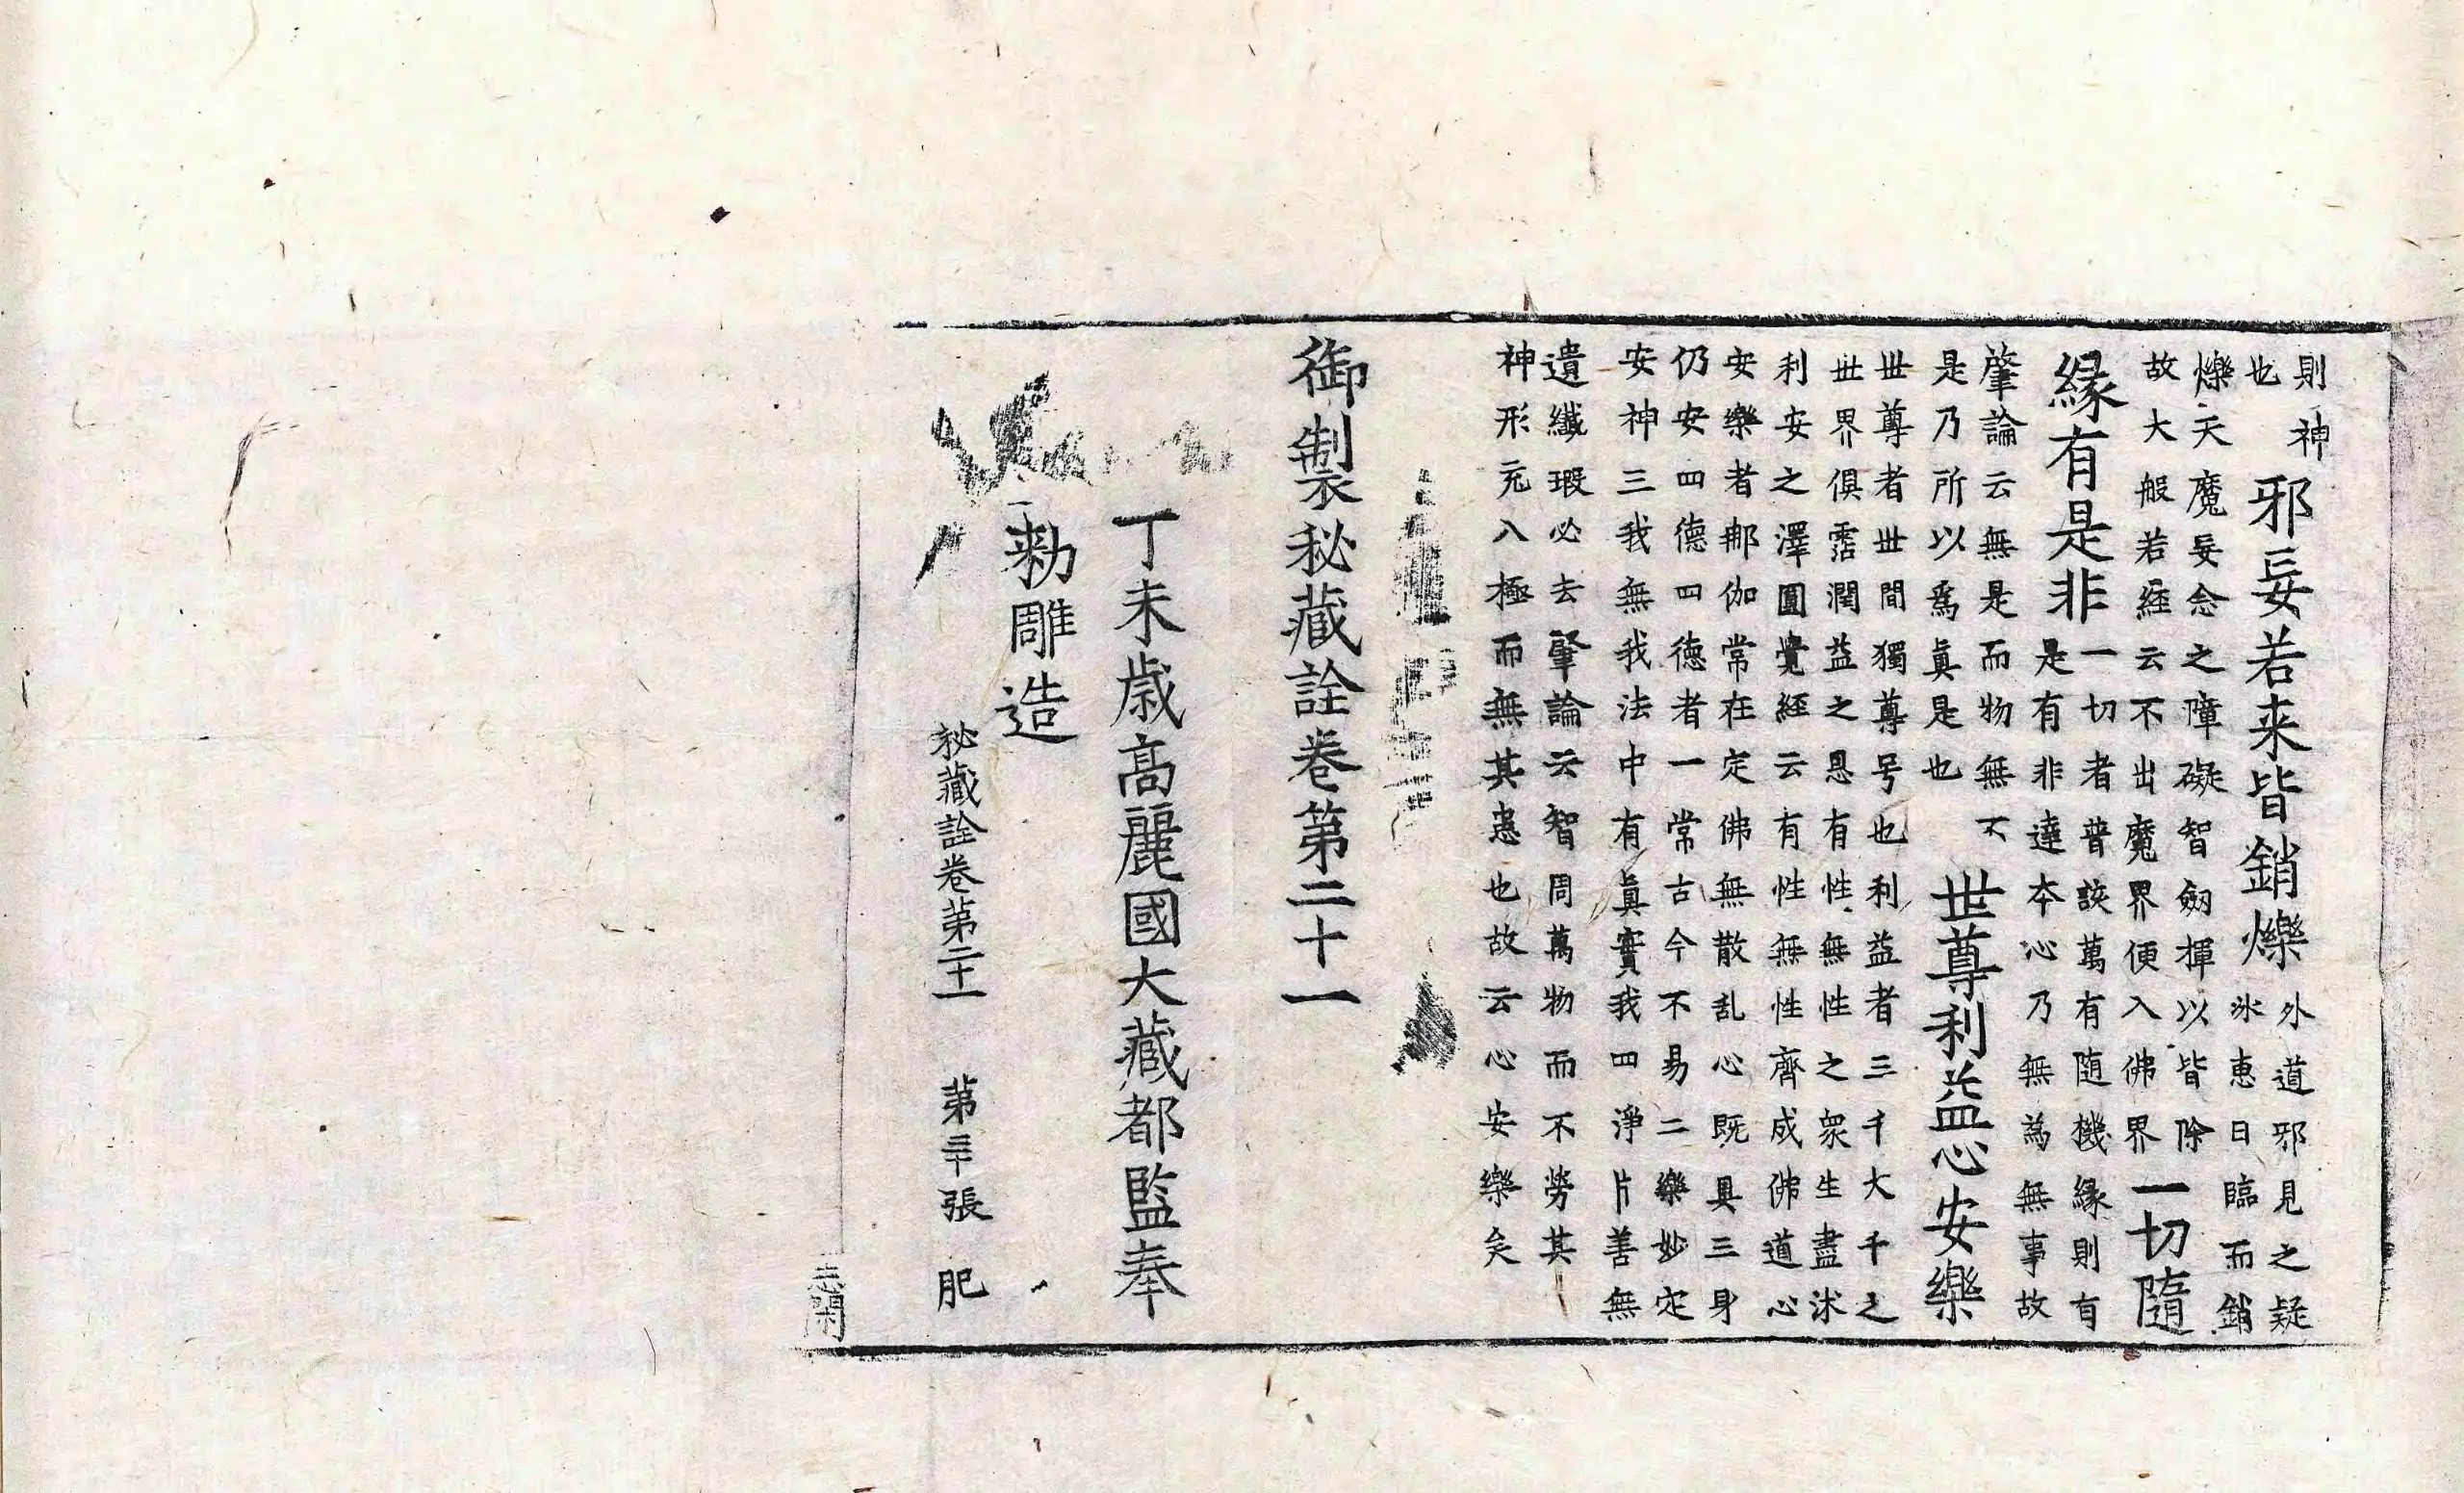 則神
也
邪妄若来皆銷爍
外道邪見之疑
氷惠日臨而銷
爍天魔妄念之障礙智劔揮以皆除
故大般若經云不出魔界便入佛界
一切隨
縁有是非
一切者普該萬有随機縁則有
是有非達夲心乃無為無事故
肇論云無是而物無不
是乃所以爲真是也
丗尊利益心安樂
丗尊者丗間獨尊号也利益者三千大千之
丗界俱霑潤益之恩有性無性之衆生盡沐
利安之澤圓覺經云有性無性齊成佛道心
安樂者那伽常在定佛無散乱心既具三身
仍安四德四德者一常古今不易二樂妙定
安神三我無我法中有眞實我四淨片善無
遺纖瑕必去肇論云智周萬物而不勞其
神形充八極而無其患也故云心安樂矣
御製秘藏詮卷第二十一
丁未歳高麗國大藏都監奉
勑雕造
秘藏詮卷第二十一　第三十張　肥